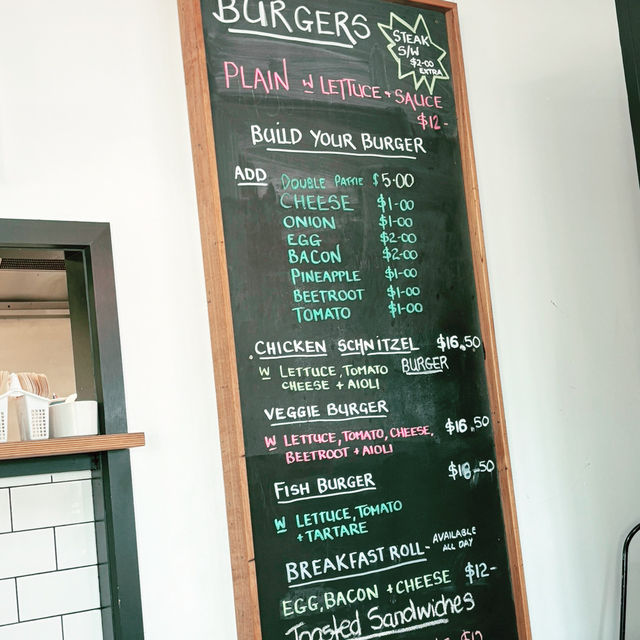 BURGERS
STEAK
S/W
$2-00
EXTRA
PLAIN W LETTUCE + SAUCE
$12-
BUILD YOUR BURGER
ADD DOUBLE PATTIE $5.00
CHEESE $1-00
ONION $1-00
EGG $2-00
BACON $2-00
PINEAPPLE $1-00
BEETROOT $1-00
TOMATO $1-00
CHICKEN SCHNITZEL $16.50
W LETTUCE, TOMATO BURGER
CHEESE + AIOLI
VEGGIE BURGER
$16.50
W LETTUCE, TOMATO, CHEESE,
BEETROOT + AIOLI
FISH BURGER
W LETTUCE, TOMATO
+ TARTARE
BREAKFAST ROLL- AVAILABLE
ALL DAY
EGG, BACON + CHEESE $12-
Toasted Sandwiches